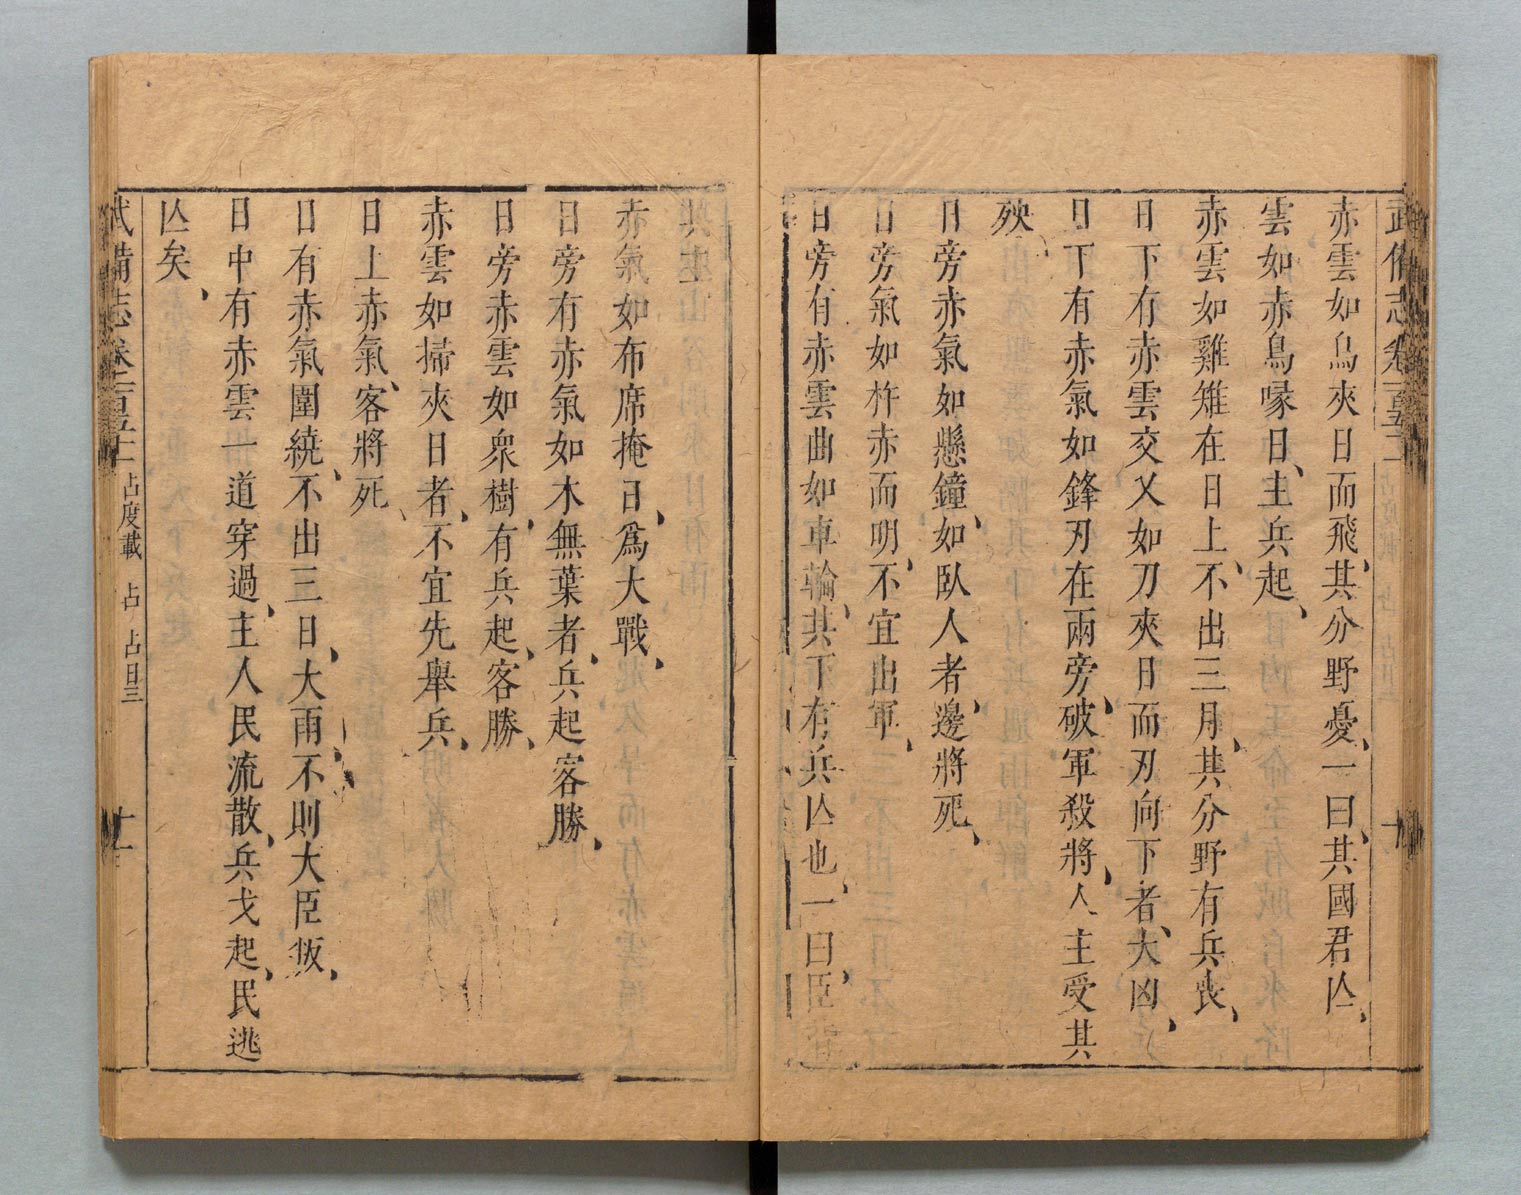 武備志卷一百五十
赤雲如烏夾日而飛、其分野憂、一曰、其國君亾、
雲如赤鳥喙日、主兵起、
赤雲如雞雉在日上、不出三月、其分野有兵喪、
日下有赤雲交叉如刀夾日而刃向下者、大凶、
日下有赤氣如鋒刃在兩旁、破軍殺將、人主受其
殃、
日旁赤氣如懸鐘、如臥人者、邊將死、
日旁氣如杵赤而明、不宜出軍、
日旁有赤雲曲如車輪、其下有兵亾也、一曰、臣
赤氣如布席掩日、爲大戰、
日旁有赤氣如木無葉者、兵起客勝、
日旁赤雲如衆樹、有兵起、客勝、
赤雲如掃夾日者、不宜先舉兵、
日上赤氣、客將死、
日有赤氣圍繞、不出三日、大雨、不則大臣叛、
日中有赤雲一道穿過、主人民流散、兵戈起、民逃
亾矣、
武備志卷一百五十一 占度載 占 占日三 十一